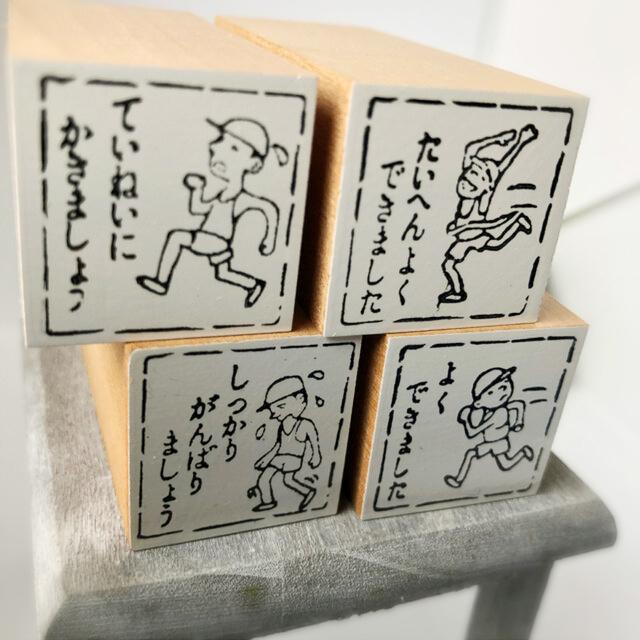 ていねいに
かきましょう
たいへんよく
できました
しっかり
がんばり
ましょう
よく
できました